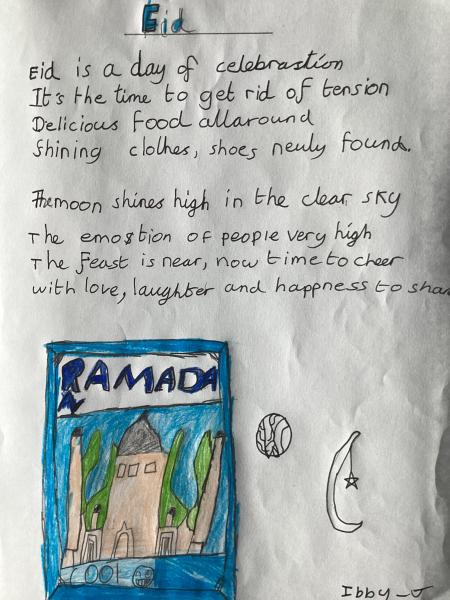 Eid
Eid is a day of celebrastion
It's the time to get rid of tension
Delicious food allaround
Shining clothes, shoes newly found.
The moon shines high in the clear sky
The emostion of people very high
The feast is near, now time to cheer
with love, laughter and happness to shar
RAMADA
N
Ibby